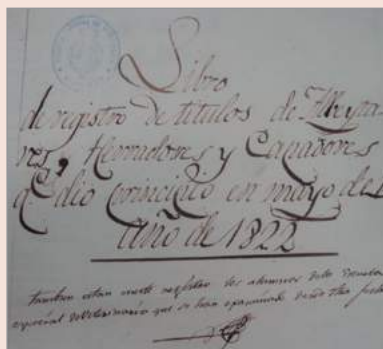 Libro
de registro de titulos de Albeyta
res, Herradores y Capadores
q.e dió principio en mayo de
año de 1822
tambien estan en este registro los alumnos de la Escuela
especial de Veterinaria que se han examinado desde dha fecha